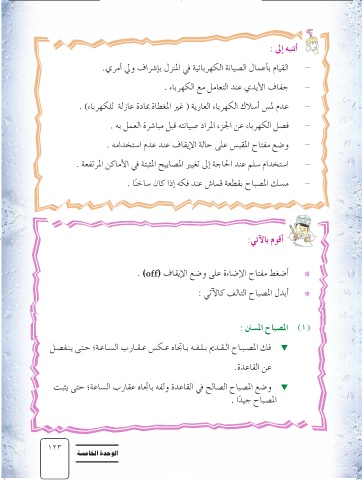 أنتبه إلى :
- القيام بأعمال الصيانة الكهربائية في المنزل بإشراف ولي أمري.
- جفاف الأيدي عند التعامل مع الكهرباء .
- عدم لمس أسلاك الكهرباء العارية ( غير المغطاة بمادة عازلة للكهرباء) .
- فصل الكهرباء عن الجزء المراد صيانته قبل مباشرة العمل به .
- وضع مفتاح المقبس على حالة الإيقاف عند عدم استخدامه .
- استخدام سلم عند الحاجة إلى تغيير المصابيح المثبتة في الأماكن المرتفعة .
- مسك المصباح بقطعة قماش عند فكه إذا كان ساخنًا .
أقوم بالآتي:
* أضغط مفتاح الإضاءة على وضع الإيقاف (off) .
* أبدل المصباح التالف كالآتي :
(١) المصباح المسنن :
▼ فك المصباح القديم بلفه باتجاه عكس عقارب الساعة؛ حتى ينفصل
عن القاعدة.
▼ وضع المصباح الصالح في القاعدة ولفه باتجاه عقارب الساعة؛ حتى يثبت
المصباح جيدًا .
الوحدة الخامسة
١٢٣